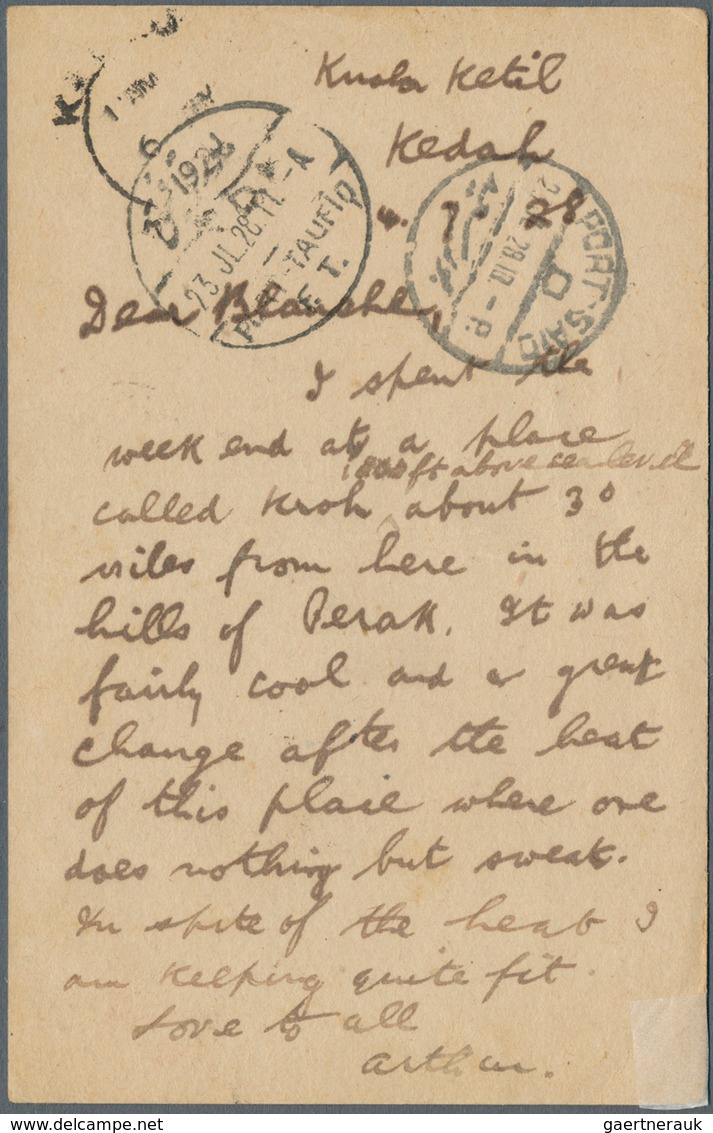 Kuala Ketil
Kedah
4. 7. 28
Dear Blanche,
I spent the
week end at a place
1000 ft above sea level
called Kroh, about 30
miles from here in the
hills of Perak. It was
fairly cool and a great
change after the heat
of this place where one
does nothing but sweat.
In spite of the heat I
am keeping quite fit.
Love to all
Arthur.
1928
23 JL.28.11 - A
PORT-TAUFIQ
E.T.
PORT-SAID
28.10 - P.
gaertnerauk